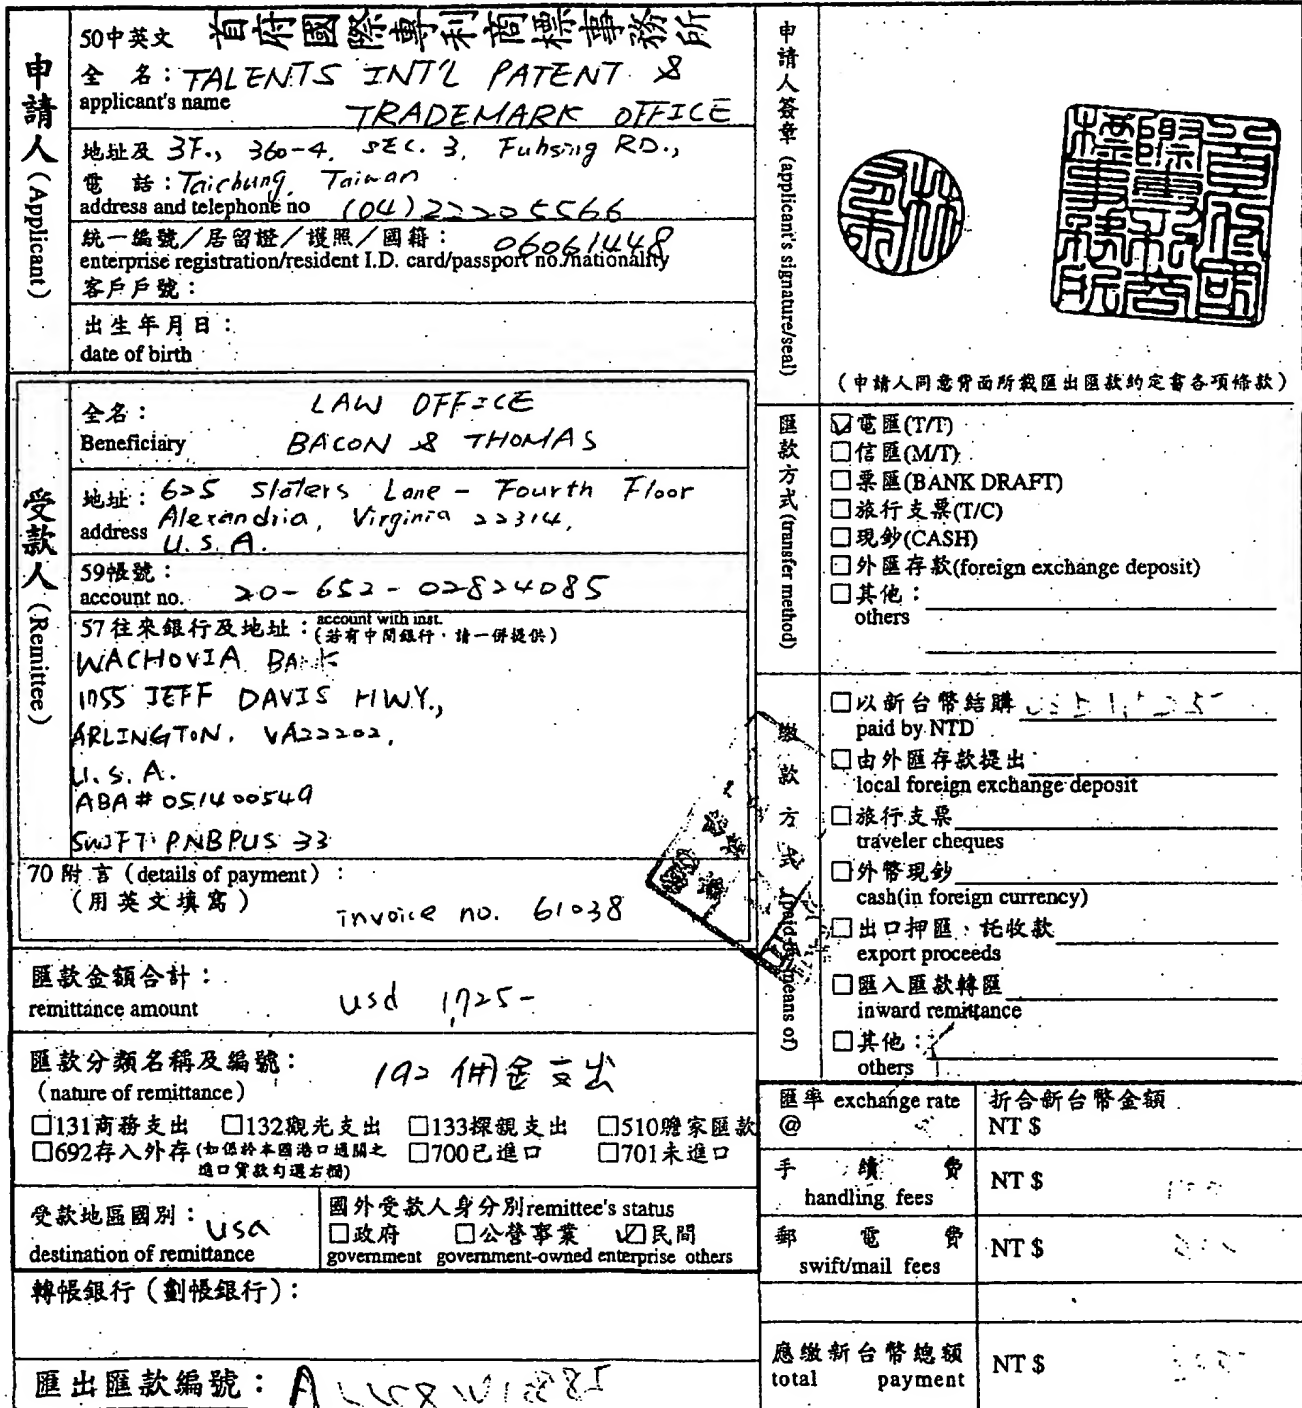 申請人 (Applicant)
50中英文 首府國際專利商標事務所
全 名：TALENTS INT'L PATENT &
applicant's name TRADEMARK OFFICE
地址及 3F., 360-4, SEC. 3, Fuhsing RD.,
電 話：Taichung, Taiwan
address and telephone no (04)22205566
統一編號／居留證／護照／國籍： 06061448
enterprise registration/resident I.D. card/passport no./nationality
客戶戶號：
出生年月日：
date of birth
受款人 (Remittee)
全名： LAW OFFICE
Beneficiary BACON & THOMAS
地址：625 Slaters Lane - Fourth Floor
address Alexandria, Virginia 22314,
U.S.A.
59帳號：
account no. 20-652-02824085
57往來銀行及地址：account with inst.
(若有中間銀行，請一併提供)
WACHOVIA BANK
1755 JEFF DAVIS HWY.,
ARLINGTON, VA22202,
U.S.A.
ABA# 051400549
SWIFT: PNBPUS 33
70附言 (details of payment)：
(用英文填寫) invoice no. 61038
匯款金額合計：
remittance amount usd 1,725-
匯款分類名稱及編號： 192 佣金支出
(nature of remittance)
□131商務支出 □132觀光支出 □133探親支出 □510贍家匯款
□692存入外存(如係於本國港口通關之進口貨款勾選右欄) □700已進口 □701未進口
受款地區國別： usa
destination of remittance
國外受款人身分別remittee's status
□政府 □公營事業 ☑民間
government government-owned enterprise others
轉帳銀行（劃帳銀行）：
匯出匯款編號：
申請人簽章 (applicant's signature/seal)
（申請人同意背面所載匯出匯款約定書各項條款）
匯款方式 (transfer method)
☑電匯(T/T)
□信匯(M/T)
□票匯(BANK DRAFT)
□旅行支票(T/C)
□現鈔(CASH)
□外匯存款(foreign exchange deposit)
□其他：
others
繳款方式 (paid by means of)
□以新台幣結購
paid by NTD
□由外匯存款提出
local foreign exchange deposit
□旅行支票
traveler cheques
□外幣現鈔
cash(in foreign currency)
□出口押匯、託收款
export proceeds
□匯入匯款轉匯
inward remittance
□其他：
others
匯率 exchange rate 折合新台幣金額
@ NT $
手續費 NT $
handling fees
郵電費 NT $
swift/mail fees
應繳新台幣總額 NT $
total payment